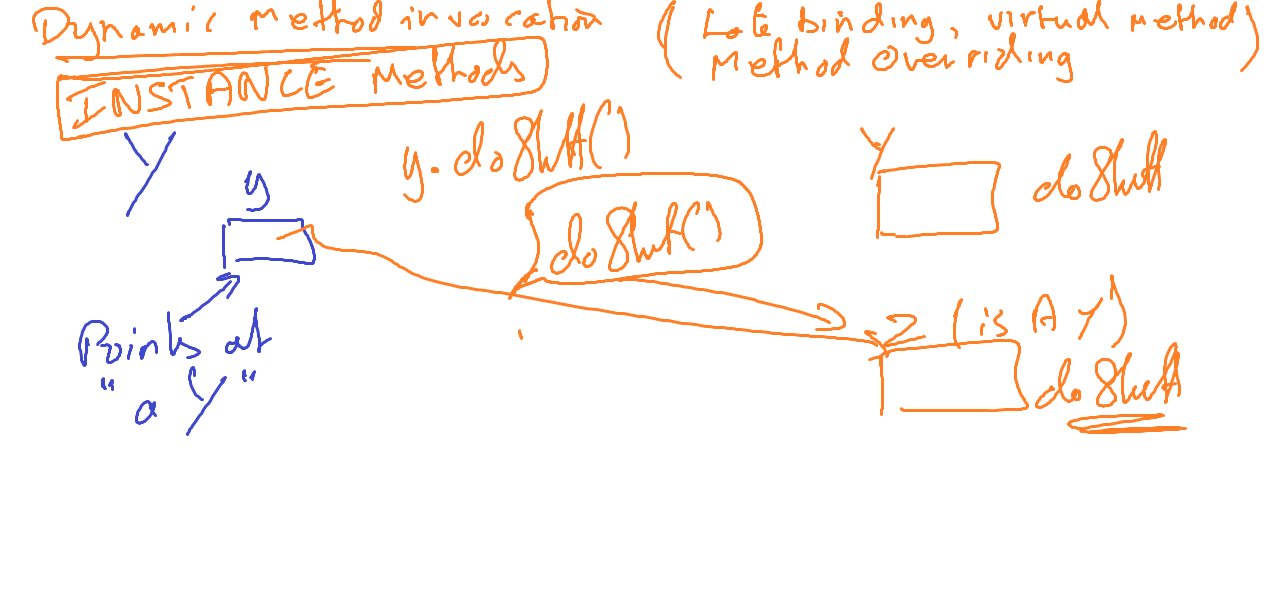 Dynamic Method invocation
( Late binding, virtual method)
Method Overriding
INSTANCE Methods
Y
y
y.doStuff()
doStuff()
Points at
"a Y"
Y
doStuff
Z (is A Y)
doStuff